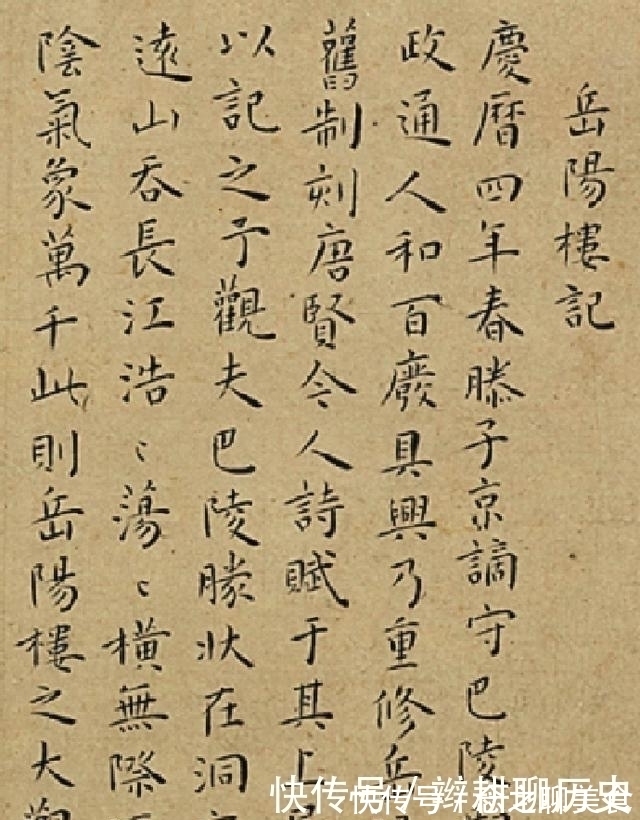 岳陽樓記
慶曆四年春滕子京謫守巴陵
政通人和百廢具興乃重修岳
舊制刻唐賢今人詩賦于其上
以記之予觀夫巴陵勝狀在洞
遠山吞長江浩〻蕩〻橫無際
陰氣象萬千此則岳陽樓之大觀
快传号/辫耕聊历史